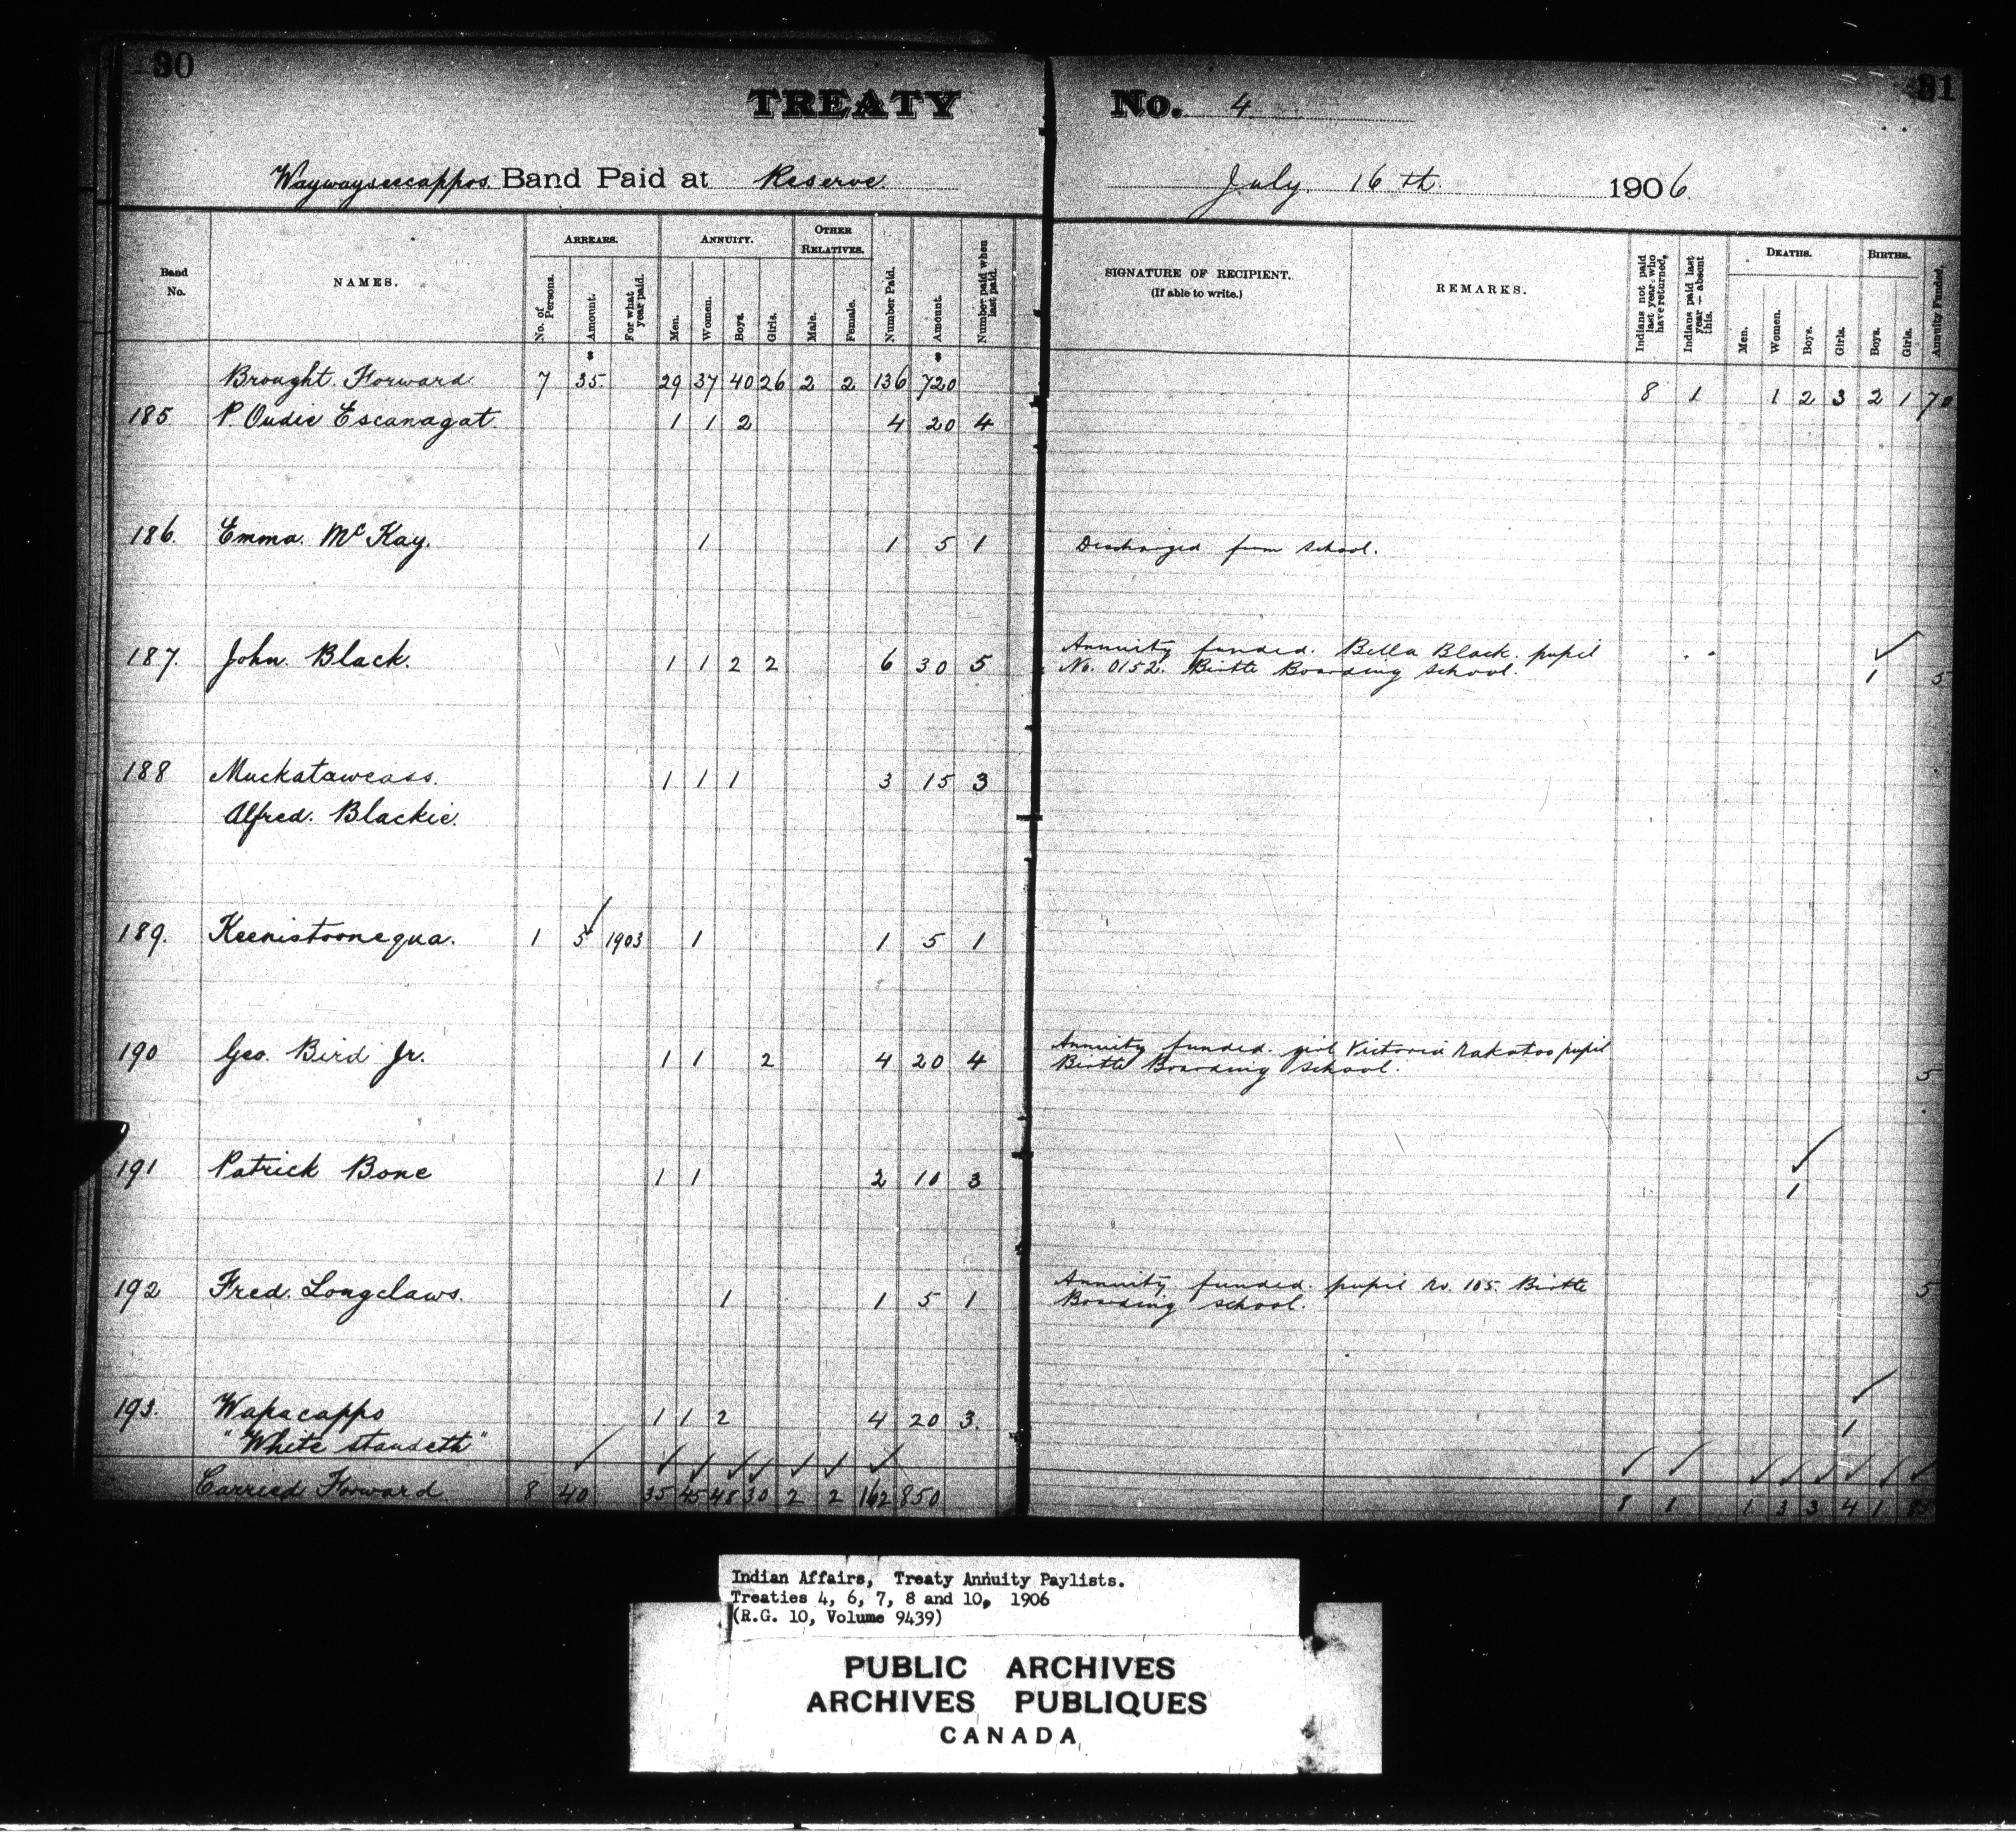 30
TREATY No. 4
31
Waywayseecappos Band Paid at Reserve July 16th 1906
Band No.
NAMES.
ARREARS.
No. of Persons.
Amount.
For what year paid.
ANNUITY.
Men.
Women.
Boys.
Girls.
OTHER RELATIVES.
Male.
Female.
Number Paid.
Amount.
Number paid when last paid.
SIGNATURE OF RECIPIENT.
(If able to write.)
REMARKS.
Indians not paid last year who have returned,
Indians paid last year — absent this.
DEATHS.
Men.
Women.
Boys.
Girls.
BIRTHS.
Boys.
Girls.
Annuity Funded,
Brought Forward 7 35 29 37 40 26 2 2 136 720 8 1 1 2 3 2 1 70
185. P. Oudie Escanagat 1 1 2 4 20 4
186. Emma McKay. 1 1 5 1 Discharged from school.
187. John Black. 1 1 2 2 6 30 5 Annuity funded. Bella Black. pupil
No. 0152. Birtle Boarding School. 1 5
188 Muckataweass. 1 1 1 3 15 3
Alfred. Blackie.
189. Keenistoonequa. 1 5 1903 1 1 5 1
190 Geo. Bird Jr. 1 1 2 4 20 4 Annuity funded. girl Victoria Nakatoo pupil
Birtle Boarding School. 5
191 Patrick Bone 1 1 2 10 3 1
192 Fred. Longclaws. 1 1 5 1 Annuity funded. pupil No. 105. Birtle
Boarding School. 5
193. Wapacapps 1 1 2 4 20 3. 1
"White standeth"
Carried Forward 8 40 35 45 48 30 2 2 162 850 8 1 1 3 3 4 1 85
Indian Affairs, Treaty Annuity Paylists.
Treaties 4, 6, 7, 8 and 10, 1906
(R.G. 10, Volume 9439)
PUBLIC ARCHIVES
ARCHIVES PUBLIQUES
CANADA